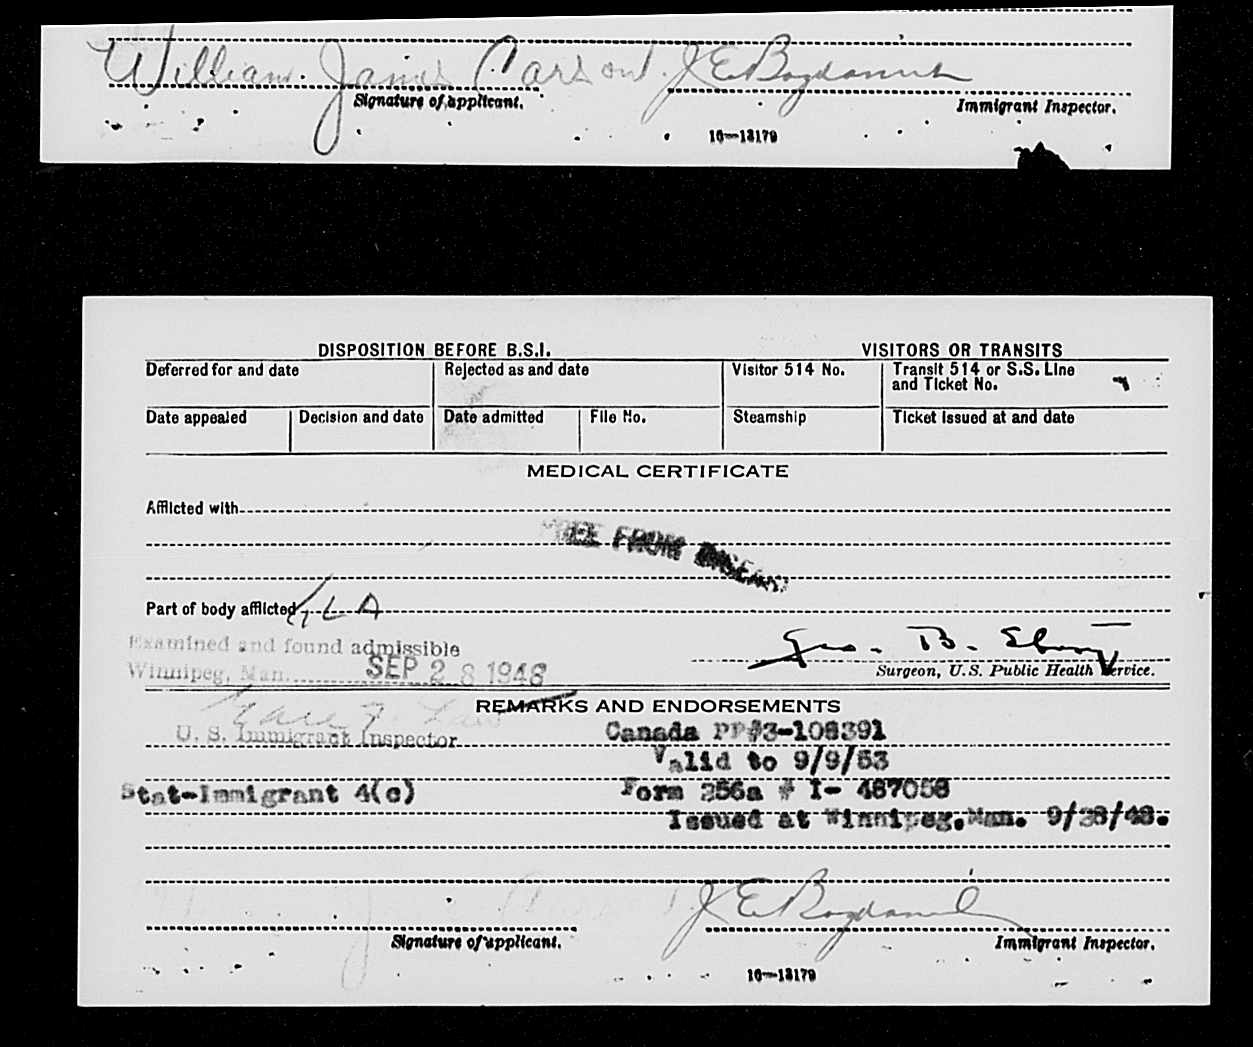 William James Carson. J E Bogdanich
Signature of applicant. Immigrant Inspector.
16—13179
DISPOSITION BEFORE B.S.I. VISITORS OR TRANSITS
Deferred for and date Rejected as and date Visitor 514 No. Transit 514 or S.S. Line
and Ticket No.
Date appealed Decision and date Date admitted File No. Steamship Ticket issued at and date
MEDICAL CERTIFICATE
Afflicted with
FREE FROM DISEASE
Part of body afflicted
Examined and found admissible
Winnipeg, Man. SEP 28 1948
Geo. B.
Surgeon, U.S. Public Health Service.
REMARKS AND ENDORSEMENTS
U. S. Immigrant Inspector
Canada PP#3-108391
Valid to 9/9/53
Stat-Immigrant 4(c) Form 256a # I- 487058
Issued at Winnipeg,Man. 9/28/48.
J E Bogdanich
Signature of applicant. Immigrant Inspector.
16—13179